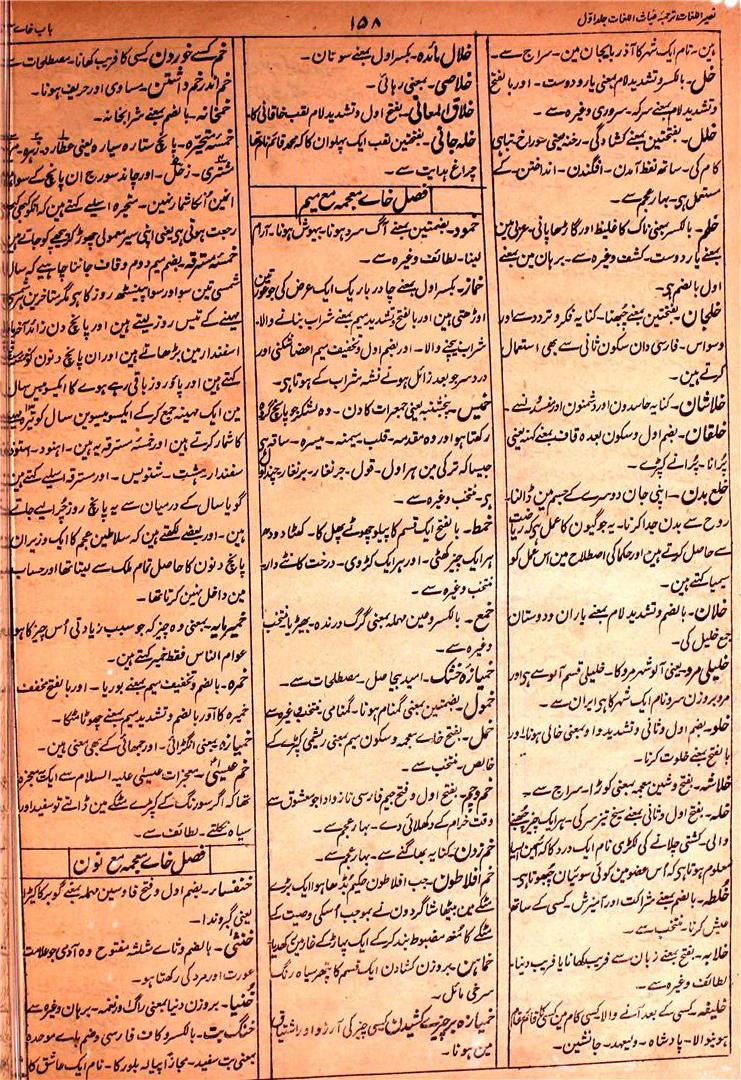 نصیر اللغات ترجمۂ غیاث اللغات جلد اول
۱۵۸
باب خاے
ہین۔ نام ایک شہر کا آذربایجان مین۔ سراج سے۔
خل۔ بالکسر و تشدید لام بمعنی یار و دوست۔ اور بالفتح
و تشدید لام بمعنے سرکہ۔ سروری وغیرہ سے۔
خلل۔ بفتحتین بمعنے کشادگی۔ رخنہ یعنی سوراخ۔ تباہی
کام کی۔ ساتھ لفظ آمدن۔ افگندن۔ انداختن۔ کے
مستعمل ہی۔ بہار عجم سے۔
خلم۔ بالکسر بمعنی ناک کا غلیظ اور گاڑھا پانی۔ عربی مین
بمعنے یار دوست۔ کشف وغیرہ سے۔ برہان مین بمعنے
اول بالضم ہی۔
خلجان۔ بفتحتین بمعنے چبھنا۔ کنایہ فکر و تردد سے اور
وسواس۔ فارسی دان سکون ثانی سے بھی استعمال
کرتے ہین۔
خلاشان۔ کنایہ حاسدون اور دشمنون اور مفسد سے۔
خلقان۔ بضم اول و سکون بعدہ قاف بمعنے کہنہ یعنی
پرانا۔ پرانے کپڑے۔
خلع بدن۔ اپنی جان دوسرے کے جسم مین ڈالنا۔
روح سے بدن جدا کرنا۔ یہ جوگیون کا عمل ہی کہ ریاضت
سے حاصل کرتے ہین اور حکما کی اصطلاح مین اس عمل کو
سیمیا کہتے ہین۔
خلان۔ بالضم و تشدید لام بمعنے یاران و دوستان
جمع خلیل کی۔
خلیلی مرو۔ یعنی آلو شہر مرو کا۔ خلیلی قسم آلو سے ہی اور
مرو بر وزن سرو نام ایک شہر کا ہی ایران سے۔
خلو۔ بضم اول و ثانی و تشدید واو بمعنی خالی ہونا۔ اور
بالفتح بمعنے خلوت کرنا۔
خلاشہ۔ بفتح و شین معجمہ بمعنی کوڑا۔ سراج سے۔
خلہ۔ بفتح اول و ثانی بمعنے سیخ تیز سر کی۔ ہر ایک چیز چبھنے
والی۔ کشتی چلانے کی لکڑی نام ایک درد کا کہ جسمین ایسا
معلوم ہوتا ہی کہ اس عضو مین کوئی سوئیان چبھوتا ہی۔
خلطہ۔ بالضم بمعنے شراکت اور آمیزش۔ کسی کے ساتھ
عیش کرنا۔ منتخب سے۔
خلابہ۔ بفتح بمعنے زبان سے فریب کھانا یا فریب دینا۔
لطائف وغیرہ سے۔
خلیفہ۔ کسی کے بعد آنے والا کسی کام مین کسی کا قائم مقام
ہونیوالا۔ پادشاہ۔ ولیعہد۔ جانشین۔
خلال مائدہ۔ بکسر اول بمعنے سوتان۔
خلاصی۔ بمعنی رہائی۔
خلاق المعانی۔ بفتح اول و تشدید لام لقب خاقانی کا۔
خلہ جانی۔ بفتحتین لقب ایک پہلوان کا کہ محمد قائم نام تھا
چراغ ہدایت سے۔
فصل خاے معجمہ مع میم
خمود۔ بضمتین بمعنے آگ سرد ہونا۔ بیہوش ہونا۔ آرام
لینا۔ لطائف وغیرہ سے۔
خمار۔ بکسر اول بمعنے چادر باریک ایک عرض کی جو عورتین
اوڑھتی ہین اور بالفتح و تشدید میم بمعنے شراب بنانے والا۔
شراب بیچنے والا۔ اور بضم اول و تخفیف میم اعضا شکنی اور
درد سر جو بعد زائل ہونے نشہ شراب کے ہوتا ہی۔
خمیس۔ پنجشنبہ یعنی جمعرات کا دن۔ وہ لشکر جو پانچ گروہ
رکھتا ہو اور وہ مقدمہ۔ قلب میمنہ۔ میسرہ۔ ساقہ ہی
جیسا کہ ترکی مین ہراول۔ قول۔ جرنغار۔ برنغار چنداول
ہی۔ منتخب وغیرہ سے۔
خمط۔ بالفتح ایک قسم کا پیلو چھوٹے پھل کا۔ کھٹا دودھ
ہر ایک چیز کھٹی۔ اور ہر ایک کڑوی۔ درخت کانٹے دار۔
منتخب وغیرہ سے۔
خمع۔ بالکسر و عین مہملہ بمعنی گرگ درندہ۔ بھیڑیا منتخب
وغیرہ سے۔
خمیازہ خشک۔ امید بیحاصل۔ مصطلحات سے۔
خمول۔ بضمتین بمعنی گمنام ہونا۔ گمنامی منتخب وغیرہ سے
خمل۔ بفتح خاے معجمہ و سکون میم بمعنی ریشمی کپڑے کے
خالص۔ منتخب سے۔
خم و چم۔ بفتح اول و فتح جیم فارسی ناز و ادا جو معشوق سے
وقت خرام کے دکھلائی دے۔ بہار عجم سے۔
خم زدن۔ کنایہ بھاگنے سے۔ بہار عجم سے۔
خم افلاطون۔ جب افلاطون حکیم بڈھا ہوا ایک بڑے
مٹکے مین بیٹھا شاگردون نے بموجب اسکی وصیت کے
مٹکے کا منھ مضبوط بند کر کے ایک پہاڑ کے غار مین رکھدیا۔
خماہن۔ بر وزن کشادن ایک قسم کا پتھر سیاہ رنگ
سرخی مائل۔
خمیازہ بر چیزے کشیدن کسی چیز کی آرزو اور اشتیاق
مین ہونا۔
خم کسے خوردن۔ کسی کا فریب کھانا۔ مصطلحات سے
خم اندر خم داشتن۔ مساوی اور حریف ہونا۔
خمخانہ۔ بالضم بمعنے شرابخانہ۔
خمسہ متحیرہ۔ پانچ ستارہ سیارہ یعنی عطارد۔ زہرہ۔ مریخ
مشتری۔ زحل۔ اور چاند سورج ان پانچ کے سوا ہین
انمین انکا شمار نہین۔ متحیرہ اسلیے کہتے ہین کہ انکو کبھی
رجعت ہوتی ہی یعنی اپنی سیر معمولی چھوڑ کر پیچھے کو جاتے ہین
خمسہ مسترقہ بضم میم دوم و قاف جاننا چاہیے کہ سال
شمسی تین سو اور سوا پینسٹھ روز کا ہی مگر متاخرین شمسی
مہینے کے تیس روز لیتے ہین اور پانچ دن زائد آخر ماہ
اسفندار مین بڑھاتے ہین اور ان پانچ دنون کو خمسہ
کہتے ہین اور پاؤ روز باقی رہے ہوے کا ایکسو بیس سال
مین ایک مہینہ جمع کر کے ایکسو بیسوین سال کو تیرہ مہینے
کا شمار کرتے ہین اور خمسہ مسترقہ یہ ہین۔ اہنود۔ اشتود۔
سفندار ہشت۔ شتویس۔ اور مسترقہ اسلیے کہتے ہین
گویا سال کے درمیان سے یہ پانچ روز چرائے جاتے
ہین۔ اور بعضے لکھتے ہین کہ سلاطین عجم کا ایک وزیر ان
پانچ دنون کا حاصل تمام ملک سے لیتا تھا اور حساب
مین داخل نہین کرتا تھا۔
خمیر مایہ۔ بمعنی وہ چیز کہ جو سبب زیادتی اس چیز کا ہو
عوام الناس فقط خمیر کہتے ہین۔
خمرہ۔ بالضم و تخفیف میم بمعنے بوریا۔ اور بالفتح مخفف
خمیرہ کا اور بالضم و تشدید میم بمعنے چھوٹا مٹکا۔
خمیازہ بمعنی انگڑائی۔ اور جمھائی کے بھی معنی ہین۔
خم عیسیٰ۔ معجزات عیسیٰ علیہ السلام سے ایک معجزہ
تھا کہ اگر سو رنگ کے کپڑے مٹکے مین ڈالتے تو سفید اور
سیاہ نکلتے۔ لطائف سے۔
فصل خاے معجمہ مع نون
خنفسار۔ بضم اول و فتح فا و سین مہملہ بمعنے گوبر کا کیڑا
یعنی گبروندا۔
خنثیٰ۔ بالضم و ثاے مثلثہ مفتوح وہ آدمی جو علامت
عورت اور مرد کی رکھتا ہو۔
خنیا۔ بر وزن دنیا بمعنی راگ و نغمہ۔ برہان وغیرہ سے
خنگ بت۔ بالکسر و کاف فارسی و ضم باے موحدہ
بمعنی بت سفید۔ مجازاً پیالہ بلور کا۔ نام ایک عاشق کا